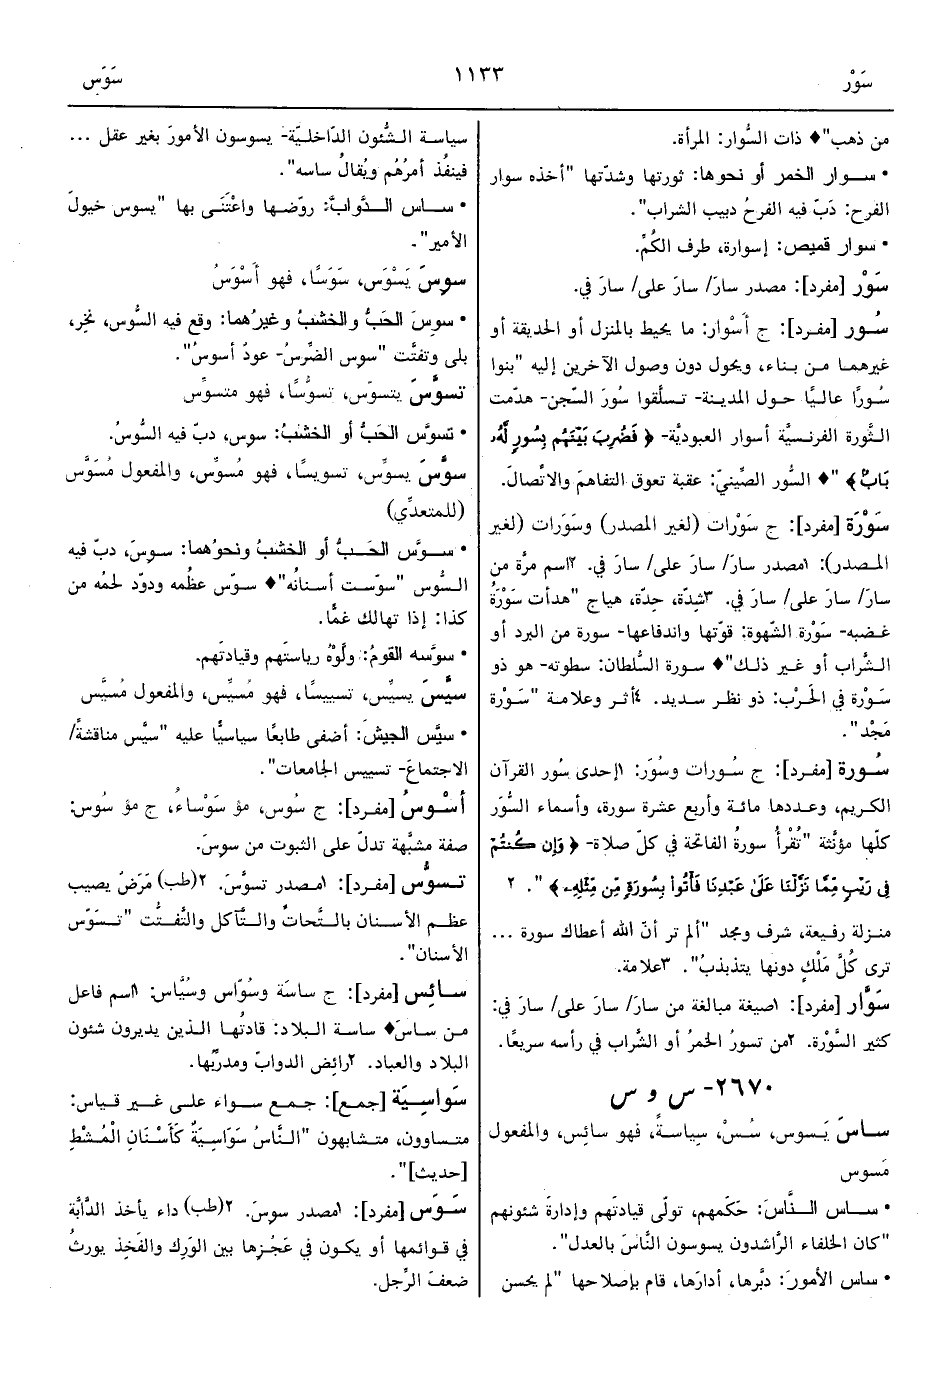 سَوْر
١١٣٣
سَوَس
من ذهب"♦ ذات السُّوار: المرأة.
• سوار الخمر أو نحوها: ثورتها وشدّتها "أخذه سوار
الفرح: دَبّ فيه الفرحُ دبيب الشراب".
• سوار قميص: إسوارة، طرف الكُمِّ.
سَوْر [مفرد]: مصدر سارَ/ سارَ على/ سارَ في.
سُور [مفرد]: ج أَسْوار: ما يحيط بالمنزل أو الحديقة أو
غيرهما من بناء، ويحول دون وصول الآخرين إليه "بنوا
سُورًا عاليًا حول المدينة- تسلّقوا سُورَ السِّجن- هدّمت
الثَّورة الفرنسيَّة أسوار العبوديَّة- ﴿ فَضُرِبَ بَيْنَهُم بِسُورٍ لَّهُۥ
بَابٌ ﴾ "♦ السُّور الصِّينيّ: عقبة تعوق التفاهمَ والاتّصالَ.
سَوْرَة [مفرد]: ج سَوْرات (لغير المصدر) وسَوَرات (لغير
المصدر): ١مصدر سارَ/ سارَ على/ سارَ في. ٢اسم مرَّة من
سارَ/ سارَ على/ سارَ في. ٣شِدَّة، حِدَّة، هياج "هدأت سَوْرَةُ
غضبه- سَوْرَة الشّهوة: قوّتها واندفاعها- سورة من البرد أو
الشَّراب أو غير ذلك"♦ سورة السُّلطان: سطوته- هو ذو
سَوْرة في الحَرْب: ذو نظر سديد. ٤أثر وعلامة "سَوْرة
مَجْد".
سُورة [مفرد]: ج سُورات وسُوَر: ١إحدى سُور القرآن
الكريم، وعددها مائة وأربع عشرة سورة، وأسماء السُّوَر
كلّها مؤنَّثة "تُقْرأُ سورةُ الفاتحة في كلّ صلاة- ﴿ وَإِن كُنتُمْ
فِى رَيْبٍ مِّمَّا نَزَّلْنَا عَلَىٰ عَبْدِنَا فَأْتُوا بِسُورَةٍ مِّن مِّثْلِهِۦ ﴾ ". ٢
منزلة رفيعة، شرف ومجد "ألم تر أنّ الله أعطاك سورة ...
ترى كُلَّ مَلْكٍ دونها يتذبذبُ". ٣علامة.
سَوَّار [مفرد]: ١صيغة مبالغة من سارَ/ سارَ على/ سارَ في:
كثير السَّوْرة. ٢من تسورُ الخمرُ أو الشَّراب في رأسه سريعًا.
٢٦٧٠- س و س
ساسَ يَسوس، سُسْ، سِياسةً، فهو سائس، والمفعول
مَسوس
• ساس النَّاسَ: حَكَمهم، تولّى قيادتَهم وإدارةَ شئونهم
"كان الخلفاء الرَّاشدون يسوسون النَّاسَ بالعدل".
• ساس الأمورَ: دبَّرها، أدارَها، قام بإصلاحها "لم يحسن
سياسة الشُّئون الدَّاخليَّة- يسوسون الأمورَ بغير عقل ...
فينفُذ أمرُهُم ويُقالُ ساسه".
• ساس الدَّوابَّ: روَّضها واعْتَنَى بها "يسوس خيولَ
الأمير".
سوِسَ يَسْوَس، سَوَسًا، فهو أَسْوَسُ
• سوِسَ الحَبُّ والخشبُ وغيرُهما: وقع فيه السُّوس، نخِر،
بلى وتفتَّت "سوِس الضِّرسُ- عودٌ أسوسُ".
تسوَّسَ يتسوَّس، تسوُّسًا، فهو متسوِّس
• تسوَّس الحَبُّ أو الخشبُ: سوِس، دبّ فيه السُّوسُ.
سوَّسَ يسوِّس، تسويسًا، فهو مُسوِّس، والمفعول مُسَوَّس
(للمتعدِّي)
• سوَّس الحَبُّ أو الخشبُ ونحوُهما: سوِسَ، دبّ فيه
السُّوس "سوّست أسنانُه"♦ سوّس عظْمُه ودوّد لحمُه من
كذا: إذا تهالك غمًّا.
• سوَّسه القومُ: ولَّوْهُ رياستَهم وقيادتَهم.
سيَّسَ يسيِّس، تسييسًا، فهو مُسيِّس، والمفعول مُسيَّس
• سيَّس الجيشَ: أضفى طابعًا سياسيًّا عليه "سيَّس مناقشةً/
الاجتماعَ- تسييس الجامعات".
أَسْوسُ [مفرد]: ج سُوس، مؤ سَوْساءُ، ج مؤ سُوس:
صفة مشبَّهة تدلّ على الثبوت من سوِسَ.
تسوُّس [مفرد]: ١مصدر تسوَّسَ. ٢(طب) مَرَضٌ يصيب
عظم الأسنان بالتَّحاتِّ والتَّآكل والتَّفتُّت "تسَوُّس
الأسنان".
سائِس [مفرد]: ج ساسَة وسُوّاس وسُيَّاس: ١اسم فاعل
من ساسَ♦ ساسة البلاد: قادتُها الذين يديرون شئون
البلاد والعباد. ٢رائض الدوابّ ومدرِّبها.
سَواسِيَة [جمع]: جمع سواء على غير قياس:
متساوون، متشابهون "النَّاسُ سَوَاسِيَةٌ كَأَسْنَانِ الْمُشْطِ
[حديث]".
سَوَس [مفرد]: ١مصدر سوِسَ. ٢(طب) داء يأخذ الدَّابَّة
في قوائمها أو يكون في عَجُزِها بين الوَرِك والفَخِذ يورثُ
ضعفَ الرِّجل.